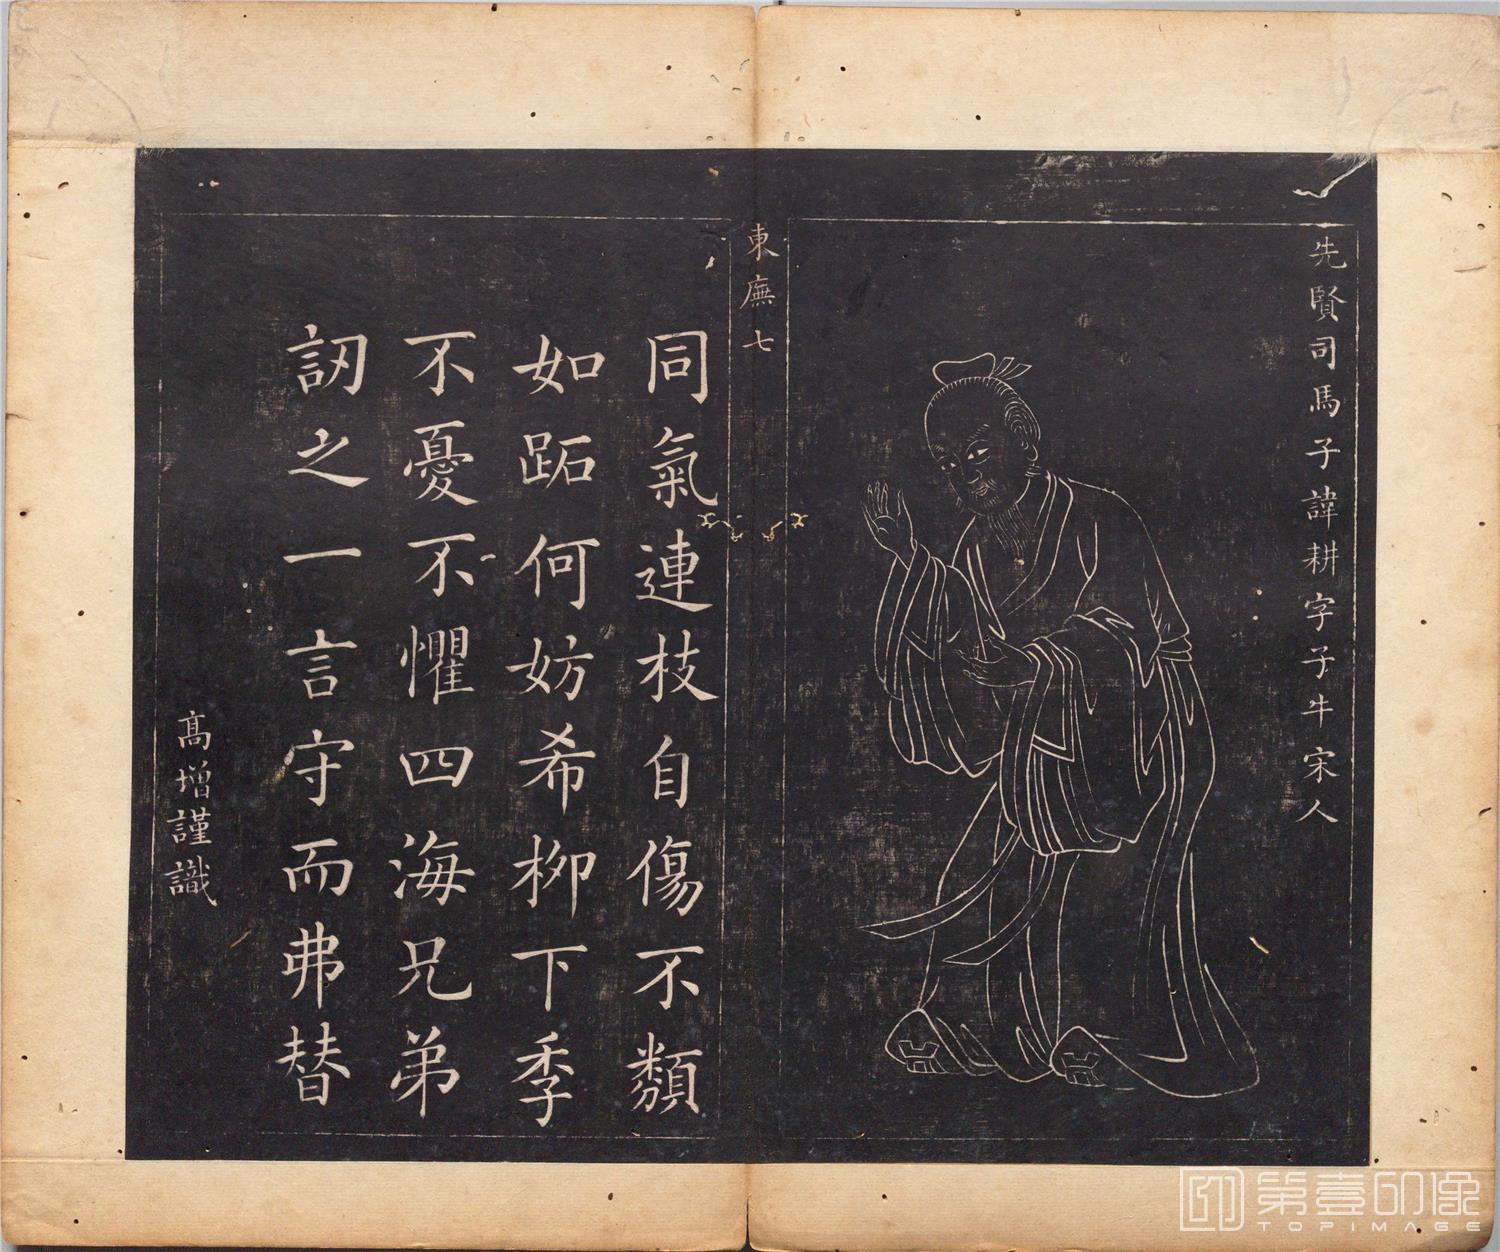 先賢司馬子諱耕字子牛宋人
東廡七
同氣連枝自傷不類
如跖何妨希柳下季
不憂不懼四海兄弟
訒之一言守而弗替
高增謹識
第壹印像
TOPIMAGE